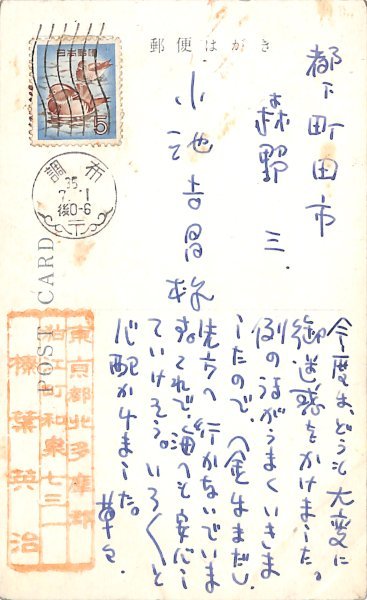 郵便はがき
日本郵便
5
調布
35.
後0-6
POST CARD
都下町田市
森野三.
小池吉昌様
今度は、どうも大変に
御迷惑をかけました。
例のほうがうまくいきま
したので、(金はまだし
先方へ行かないでいま
す。)それで、海へも安心し
ていけそう。いろくと
心配かけました。
草々.
東京都北多摩郡
狛江町和泉七三一
榛葉英治